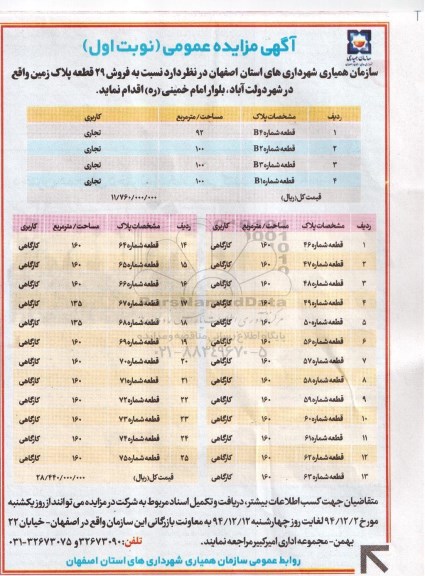 آگهی مزایده عمومی (نوبت اول)
سازمان همیاری شهرداری های استان اصفهان در نظر دارد نسبت به فروش ۲۹ قطعه پلاک زمین واقع
در شهر دولت آباد، بلوار امام خمینی (ره) اقدام نماید.
ردیف مشخصات پلاک مساحت/ مترمربع کاربری
۱ قطعه شماره B۴ ۹۲ تجاری
۲ قطعه شماره B۲ ۱۰۰ تجاری
۳ قطعه شماره B۳ ۱۰۰ تجاری
۴ قطعه شماره B۱ ۱۰۰ تجاری
قیمت کل (ریال) ۱۱/۷۶۰/۰۰۰/۰۰۰
ردیف مشخصات پلاک مساحت/ مترمربع کاربری ردیف مشخصات پلاک مساحت/ مترمربع کاربری
۱ قطعه شماره ۴۶ ۱۶۰ کارگاهی ۱۴ قطعه شماره ۶۴ ۱۶۰ کارگاهی
۲ قطعه شماره ۴۷ ۱۶۰ کارگاهی ۱۵ قطعه شماره ۶۵ ۱۶۰ کارگاهی
۳ قطعه شماره ۴۸ ۱۶۰ کارگاهی ۱۶ قطعه شماره ۶۶ ۱۶۰ کارگاهی
۴ قطعه شماره ۴۹ ۱۶۰ کارگاهی ۱۷ قطعه شماره ۶۷ ۱۳۵ کارگاهی
۵ قطعه شماره ۵۰ ۱۶۰ کارگاهی ۱۸ قطعه شماره ۶۸ ۱۳۵ کارگاهی
۶ قطعه شماره ۵۶ ۱۶۰ کارگاهی ۱۹ قطعه شماره ۶۹ ۱۶۰ کارگاهی
۷ قطعه شماره ۵۷ ۱۶۰ کارگاهی ۲۰ قطعه شماره ۷۰ ۱۶۰ کارگاهی
۸ قطعه شماره ۵۸ ۱۶۰ کارگاهی ۲۱ قطعه شماره ۷۱ ۱۶۰ کارگاهی
۹ قطعه شماره ۵۹ ۱۶۰ کارگاهی ۲۲ قطعه شماره ۷۲ ۱۶۰ کارگاهی
۱۰ قطعه شماره ۶۰ ۱۶۰ کارگاهی ۲۳ قطعه شماره ۷۳ ۱۶۰ کارگاهی
۱۱ قطعه شماره ۶۱ ۱۶۰ کارگاهی ۲۴ قطعه شماره ۷۴ ۱۶۰ کارگاهی
۱۲ قطعه شماره ۶۲ ۱۶۰ کارگاهی ۲۵ قطعه شماره ۷۵ ۱۶۰ کارگاهی
۱۳ قطعه شماره ۶۳ ۱۶۰ کارگاهی قیمت کل (ریال) ۲۸/۴۴۰/۰۰۰/۰۰۰
۰۲۱-۸۸۳۴۹۶۷۰-۵
متقاضیان جهت کسب اطلاعات بیشتر، دریافت و تکمیل اسناد مربوط به شرکت در مزایده می توانند از روز یکشنبه
مورخ ۹۴/۱۲/۲ لغایت روز چهارشنبه ۹۴/۱۲/۱۲ به معاونت بازرگانی این سازمان واقع در اصفهان - خیابان ۲۲
بهمن - مجموعه اداری امیرکبیر مراجعه نمایند. تلفن: ۳۲۶۷۳۰۹۰ و ۳۲۶۷۳۰۷۵-۰۳۱
روابط عمومی سازمان همیاری شهرداری های استان اصفهان